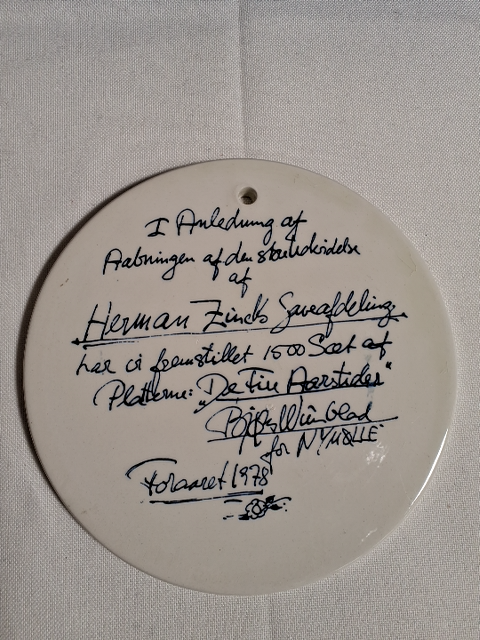 I Anledning af
Aabningen af den storstædidelse
af
Herman Zincks Gaveafdeling
har vi fremstillet 1500 Sæt af
Platterne: „De Fire Aarstider"
Bjørn Wiinblad
for NYMØLLE
Foraaret 1978